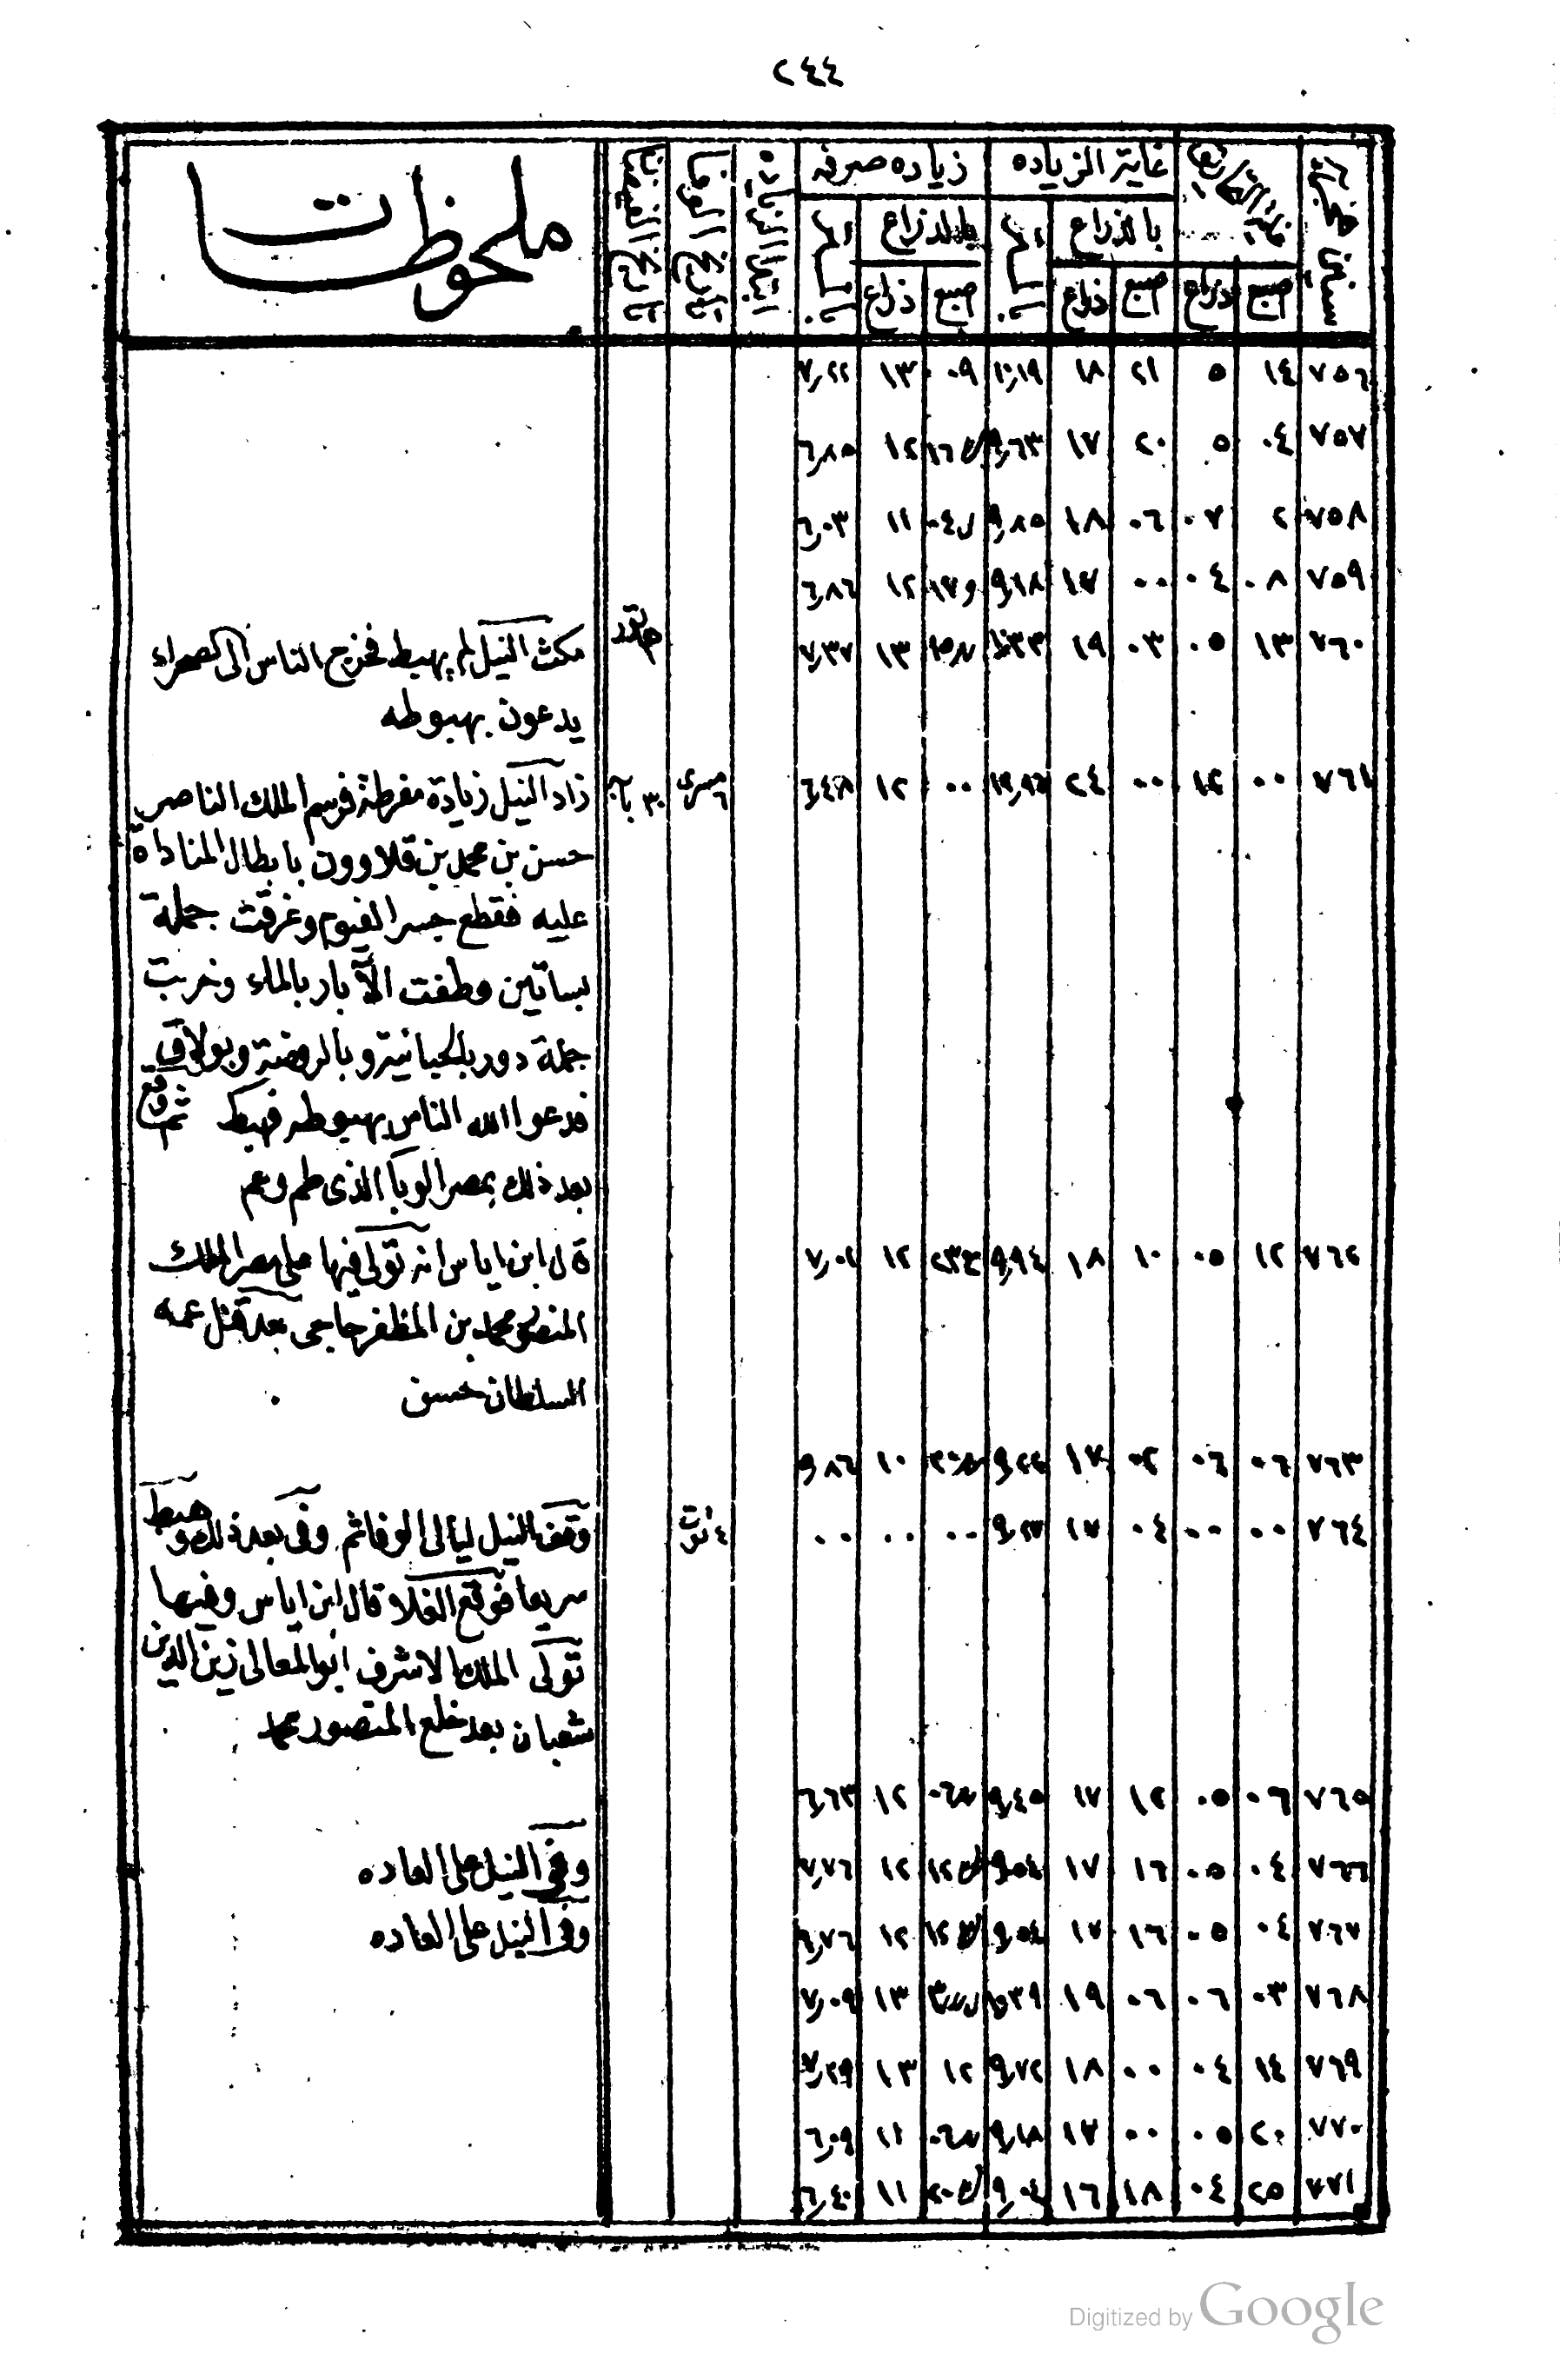 ٢٤٤
غاية الزياده
زياده صرفه
ملحوظات
بالذراع
بالذراع
اصبع ذراع اصبع ذراع اصبع ذراع
٧٥٦ ١٤ ٥ ٢١ ١٨ ١٠,١٩ ٠٩ ١٣ ٧,٢٢
٧٥٧ ٠٤ ٥ ٢٠ ١٧ ٩,٦٣ ١٢ ٦,٨٥
٧٥٨ ٢ ٠٧ ٠٦ ١٨ ٩,٨٥ ١١ ٦,٠٣
٧٥٩ ٠٨ ٠٤ ٠٠ ١٧ ٩,١٨ ١٢ ٦,٨٦
٧٦٠ ١٣ ٠٥ ٠٣ ١٩ ١٠,٣٣ ١٣ ٧,٣٧
مكث النيل لم يهبط فخرج الناس الى الصحراء
يدعون بهبوطه
٧٦١ ٠٠ ١٢ ٠٠ ٢٤ ٠٠ ١٢ ٦,٤٨ ٦ مسرى ٣٠ بابه
زاد النيل زيادة مفرطة فرسم الملك الناصر
حسن بن محمد بن قلاوون بابطال المناداة
عليه فقطع جسر الفيوم وغرقت جملة
بساتين وطفت الآبار بالماء وخربت
جملة دور بالجيانية وبالروضة وبولاق
فدعوا الله الناس بهبوطه فهبط ثم وقع
بعد ذلك بمصر الوبا الذى طم وعم
٧٦٢ ١٢ ٠٥ ١٠ ١٨ ٩,٩٤ ١٢ ٧,٠١
قال ابن اياس انه تولى فيها على مصر الملك
المنصور محمد بن المظفر حاجى بعد قتل عمه
السلطان حسن
٧٦٣ ٠٦ ٠٦ ٠٢ ١٧ ٩,٢٢ ١٠ ٩,٨٦
٧٦٤ ٠٠ ٠٠ ٠٤ ١٧ ٩,٢٧ ٠٠ ٠٠ ٠٠ ٤ توت
وقف النيل ليالى الوفا ثم وفى بعد ذلك وهبط
سريعا فوقع الغلا قال ابن اياس وفيها
تولى الملك الاشرف ابو المعالى زين الدين
شعبان بعد خلع المنصور محمد
٧٦٥ ٠٦ ٠٥ ١٢ ١٧ ٩,٤٥ ١٢ ٦,٦٣
٧٦٦ ٠٤ ٠٥ ١٦ ١٧ ٩,٥٤ ١٢ ٧,٧٦
وفى النيل على العاده
٧٦٧ ٠٤ ٠٥ ١٦ ١٧ ٩,٥٤ ١٢ ٦,٧٦
وفى النيل على العاده
٧٦٨ ٠٣ ٠٦ ٠٦ ١٩ ١٠,٣٩ ١٣ ٧,٠٩
٧٦٩ ١٤ ٠٤ ٠٠ ١٨ ٩,٧٢ ١٢ ١٣ ٧,٢٩
٧٧٠ ٢٠ ٠٥ ٠٠ ١٧ ٩,١٨ ١١ ٦,٠٩
٧٧١ ٢٥ ٠٤ ١٨ ١٦ ٩,٠٤ ١١ ٦,٤٠
Digitized by Google